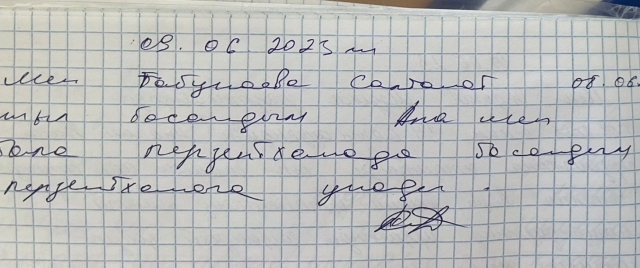 09. 06 2023 ш
мен Бабунаева Салтанат 08. 06.
шыл босандым Ана мен
бала перзентханада босандым
перзентханага унады.